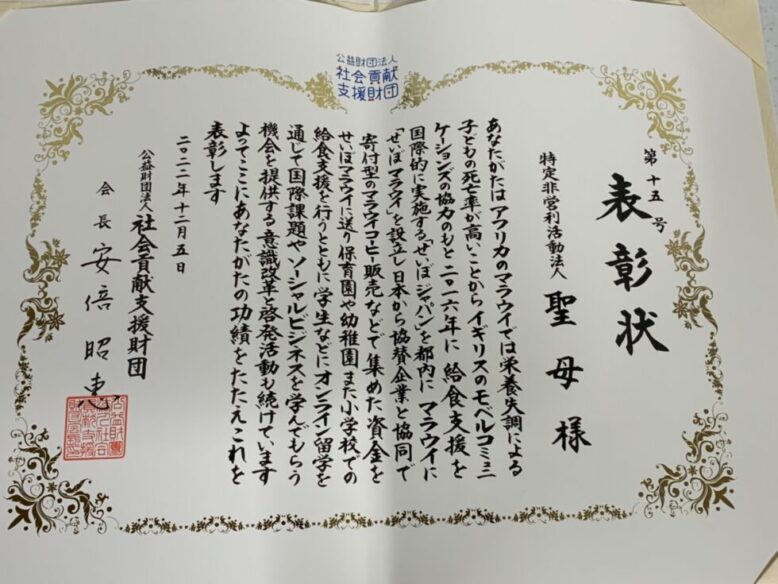 公益財団法人
社会貢献
支援財団
第十五号
表彰状
特定非営利活動法人
聖母様
あなたがたはアフリカのマラウイでは栄養失調による
子どもの死亡率が高いことからイギリスのモベルコミュニ
ケーションズの協力のもと二〇一六年に給食支援を
国際的に実施する「せいぼジャパン」を都内に マラウイに
「せいぼ マラウイ」を設立し日本から協賛企業と協同で
寄付型のマラウイコーヒー販売などで集めた資金を
せいぼマラウイに送り保育園や幼稚園 また小学校での
給食支援を行うとともに学生などにオンライン留学を
通じて国際課題やソーシャルビジネスを学んでもらう
機会を提供する意識改革と啓発活動も続けています
よってここにあなたがたの功績をたたえこれを
表彰します
二〇二二年十二月五日
公益財団法人 社会貢献支援財団
会長 安倍昭恵